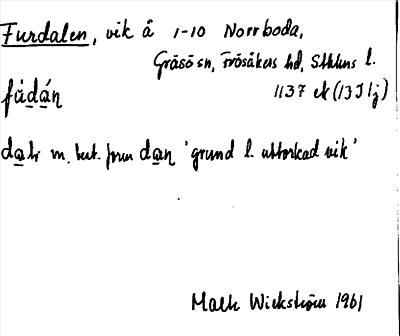 Furdalen, vik å 1-10 Norrboda,
Gräsö sn, Frösåkers hd, Sthlms l.
fúdán 1137 ek (13I 1j)
dalr m. best. form dan 'grund l. uttorkad vik'
Mats Wickström 1961